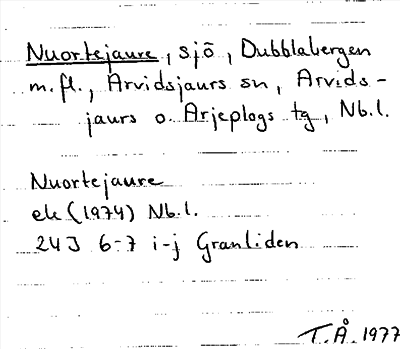 Nuortejaure, sjö, Dubblabergen
m.fl., Arvidsjaurs sn, Arvids-
jaurs o. Arjeplogs tg, Nb.l.
Nuortejaure
ek (1974) Nb.l.
24J 6-7 i-j Granliden
T.Å. 1977